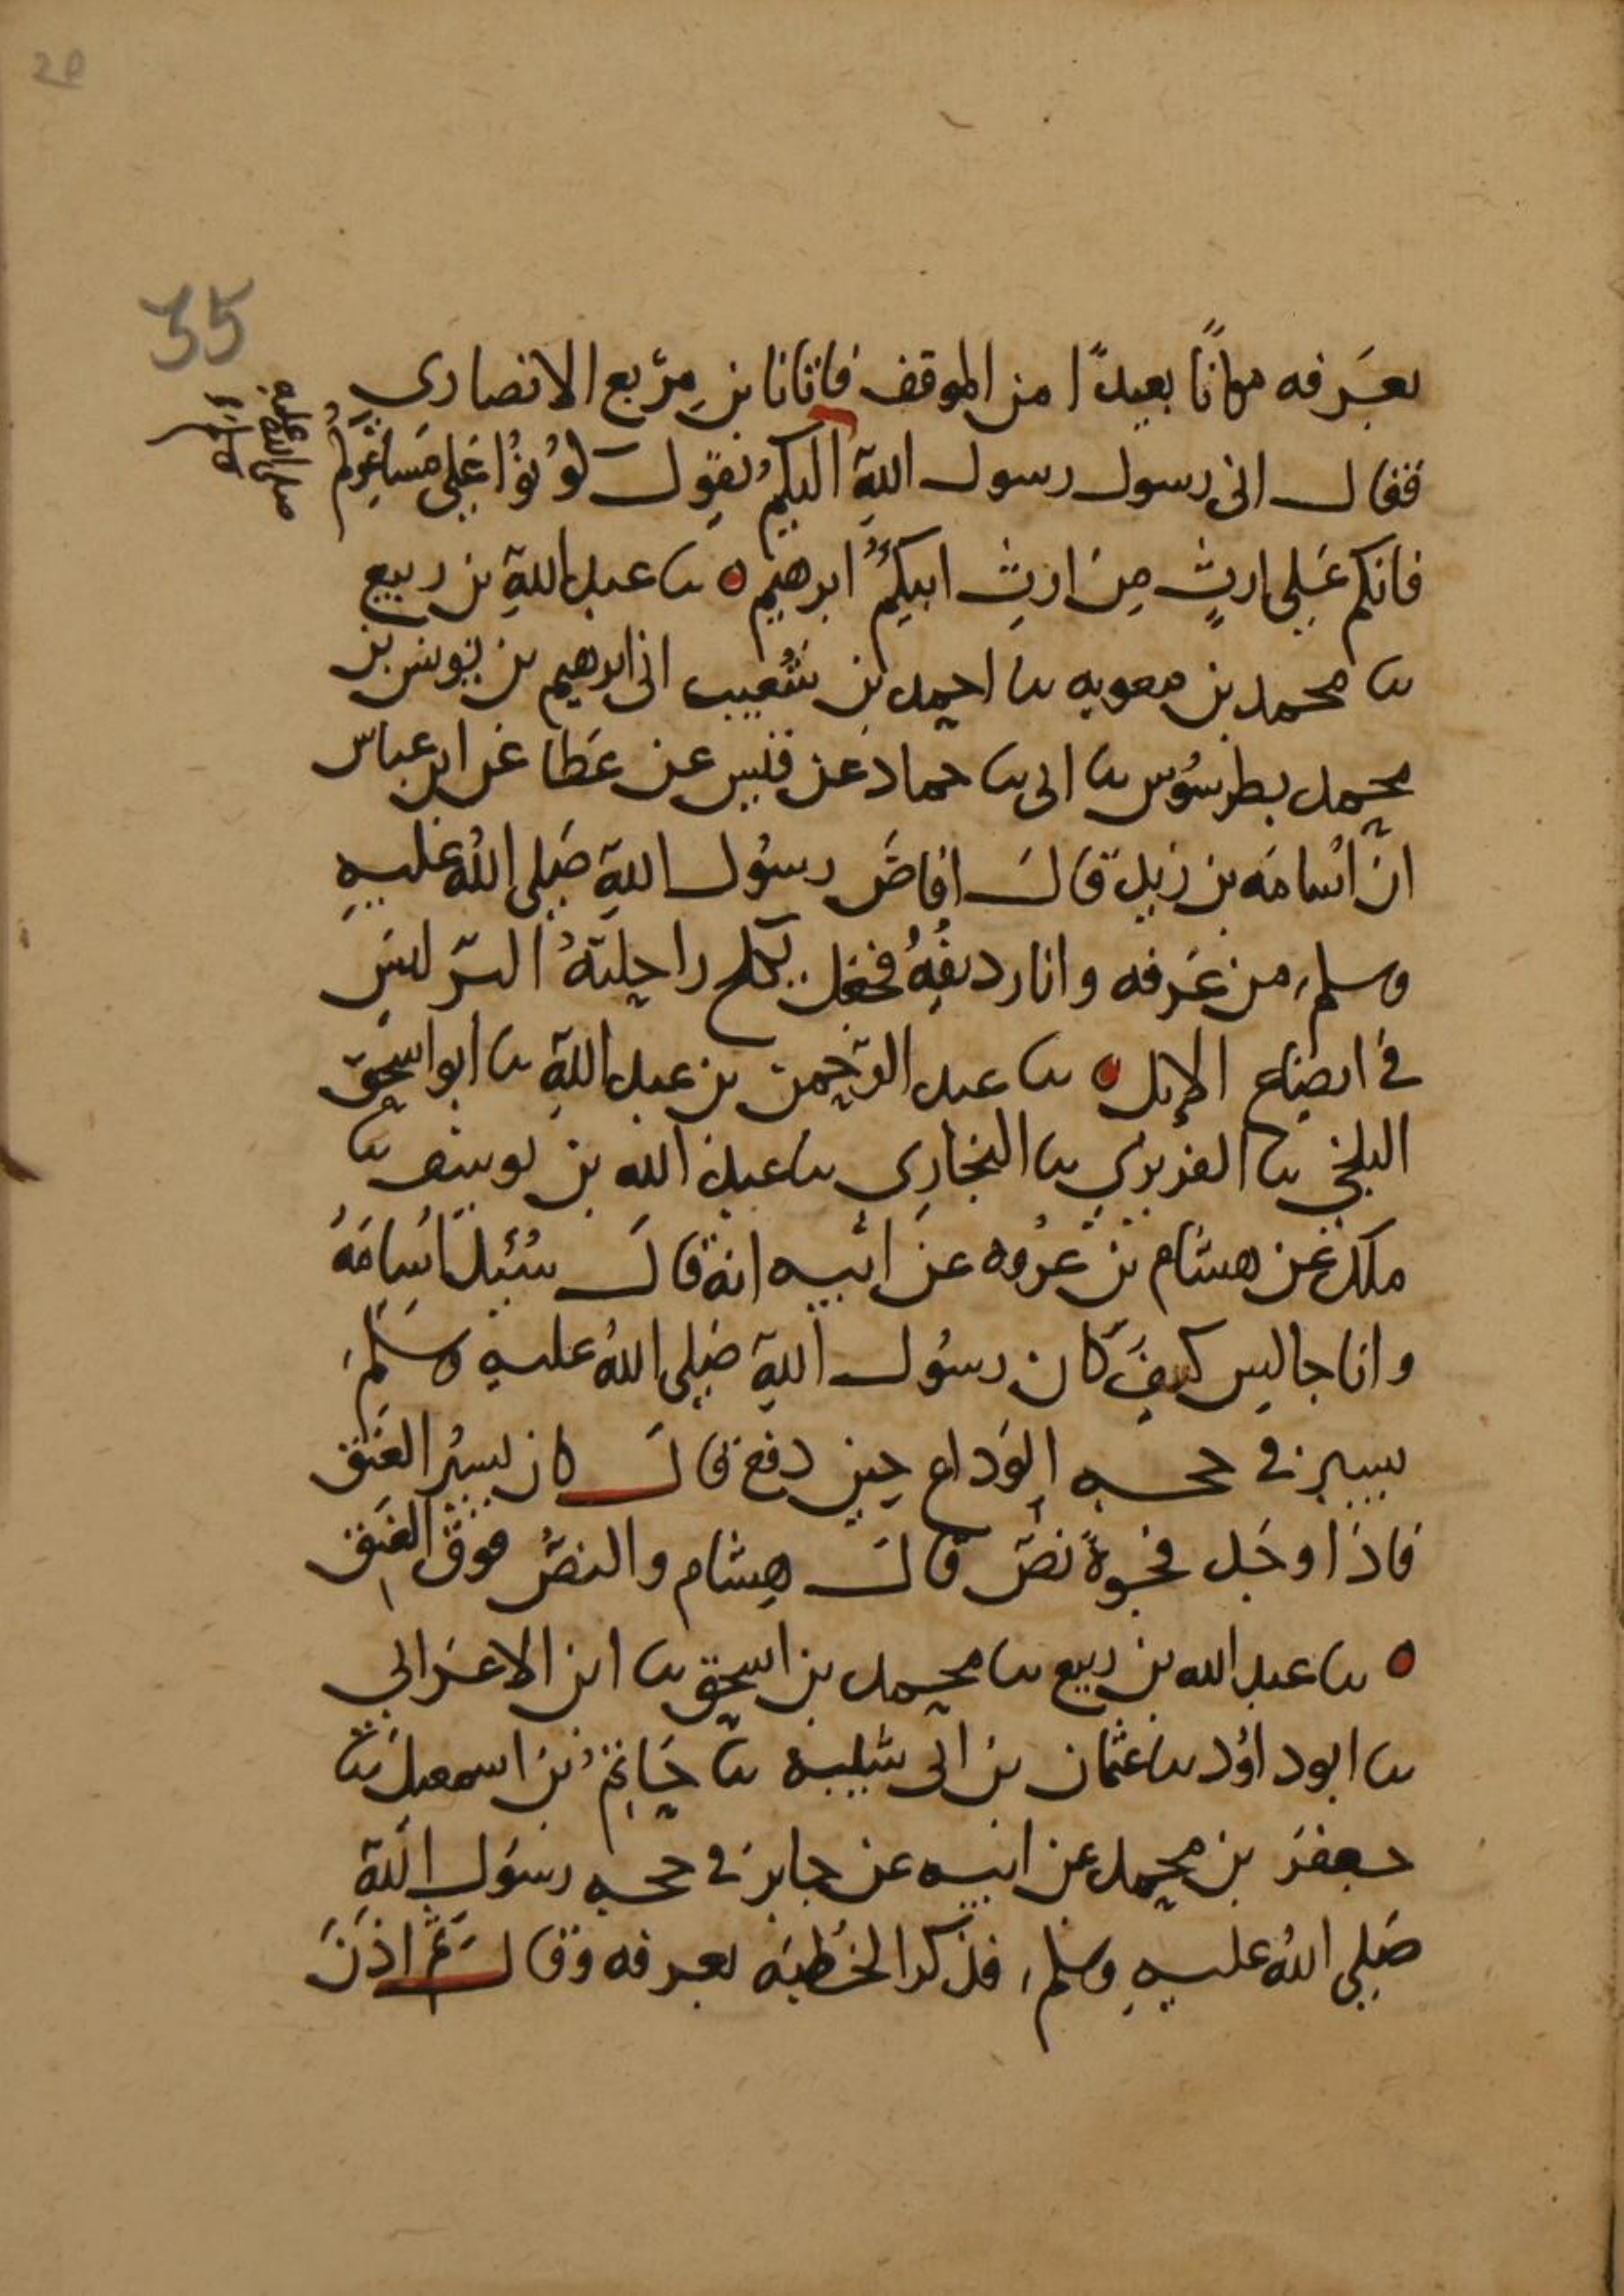 20
35
بعَرفه مكانًا بعيدًا من الموقف فاتانا بن مِرْبع الانصاري
فقال اني رسول رسول اللهِ اليكمُ يقول كونُوْا عَلى مَشاعِركمُ
صلى الله عليه وسلم
فانكم عَلى ارثٍ مِن ارثِ ابيكمُ ابرهيم ٥ نا عبد اللهِ بن ربيع
نا محمد بن معويه نا احمد بن شُعَيب اني ابرهيم بن يونس بن
محمد بطرسُوس نا ابي نا حماد عن قيس عن عَطا عن ابن عباس
انّ اسُامَه بن زيد قال افاضَ رسوُل اللهِ صَلى اللهُ عليهِ
وسلم من عَرفه وانا رديفهُ فجعل يكبح راحلتهُ
في ايضاع الإبل ٥ نا عبد الرّحمن بن عبد اللهِ نا ابو اسحق
البلخي نا الفربري نا البخارِي نا عبد الله بن يوسف نا
ملك عن هشام بن عُروه عن ابيه انه قالَ سُئِل اسُامَهُ
وانا جالِس كيفَ كان رسوُل اللهِ صَلى اللهُ عليهِ وسلم
يسير في حجه الوَداع حين دفع قالَ كان يسيرُ العَنَق
فاذا وجَد فجوةً نصّ قالَ هِشام والنصّ فوقَ العَنَق
٥ نا عبد الله بن ربيع نا محمد بن اسحق نا ابن الاعرَابي
نا ابو داوُد نا عثمان بن ابي شيبه نا حَاتم بن اسمعيل نا
جعفرَ بن محمد عن ابيه عن جابر في حجه رسوُل اللهِ
صَلى اللهُ عليهِ وسلم فذكر الخُطبَه بعرفه وقالَ ثمّ اذنَ